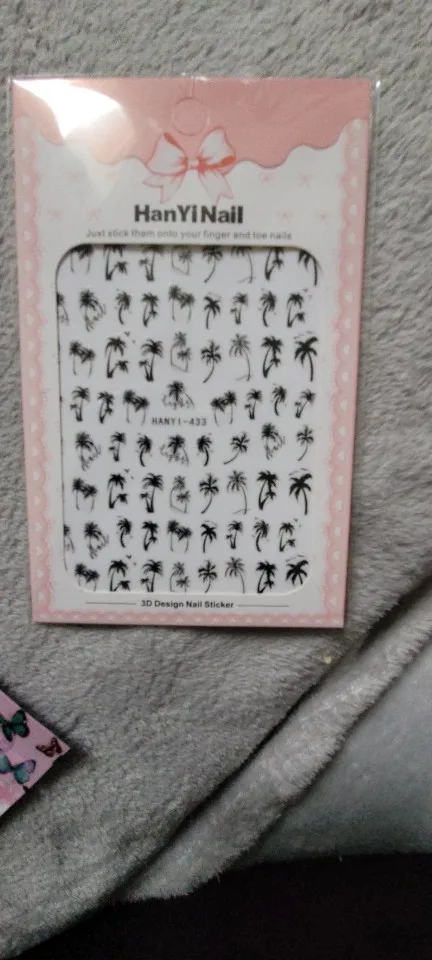 HanYi Nail
Just stick them onto your finger and toe nails
HANYI-433
3D Design Nail Sticker